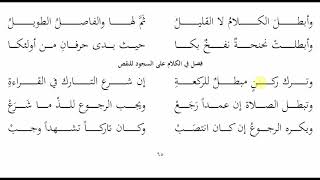 وأبطل الكلامُ لا القليلُ ثمَّ لها والفاصلُ الطويلُ
وأبطلتْ نحنحةٌ نفخٌ بكا حيث بدى حرفانِ من أولئكا
فصل في الكلام على السجود للنقص
وترك ركنٍ مبطلٌ للركعةِ إن شرع التارك في القراءةِ
وتبطل الصلاة إن عمداً رَجَعْ ويجب الرجوع للذْ ما شَرَعْ
ويكره الرجوعُ إن كان انتصَبْ وكان تاركاً تشهداً وجبْ
٦٥